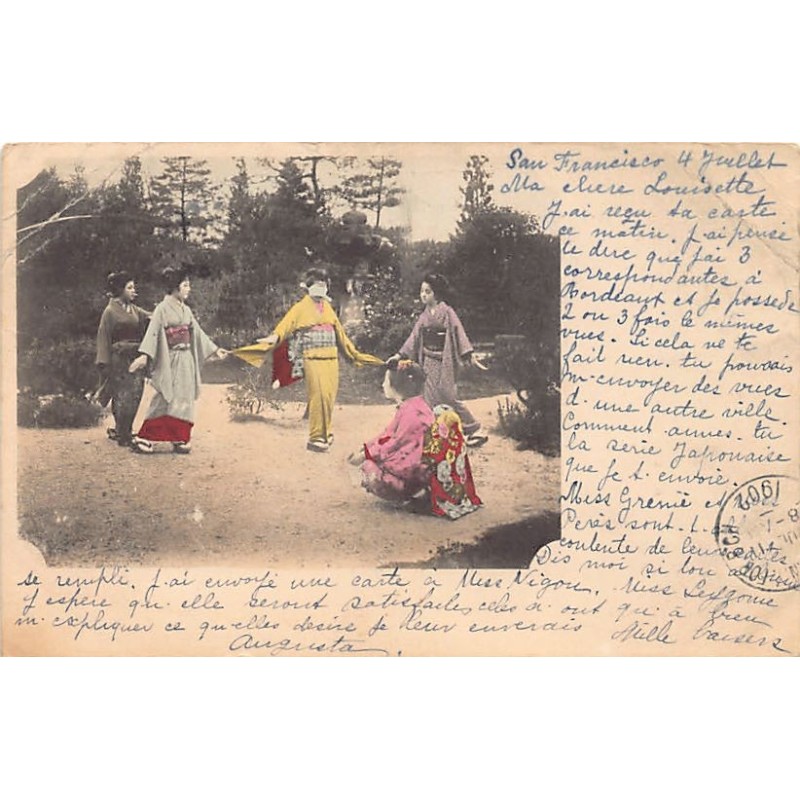 San Francisco 4 Juillet
Ma chere Louisette
J.ai reçu ta carte
ce matin. J.ai pensé
te dire que j'ai 3
correspondantes à
Bordeaux et je possede
2 ou 3 fois le mêmes
vues. Si cela ne te
fait rien. tu pouvais
m.envoyer des vues
d'une autre ville.
Comment aimes. tu
la serie Japonaise
que je t. envoie.
Miss Grenié et
Perès sont. t.
contente de leur
Dis moi si lon
1902
se rempli. J.ai envoyé une carte à Miss Nigou. Miss
J'espère qu. elle seront satisfaites celes à ont qu. à
m. expliquer ce qu'elles desire je leur enverais Mille baisers
Augusta.